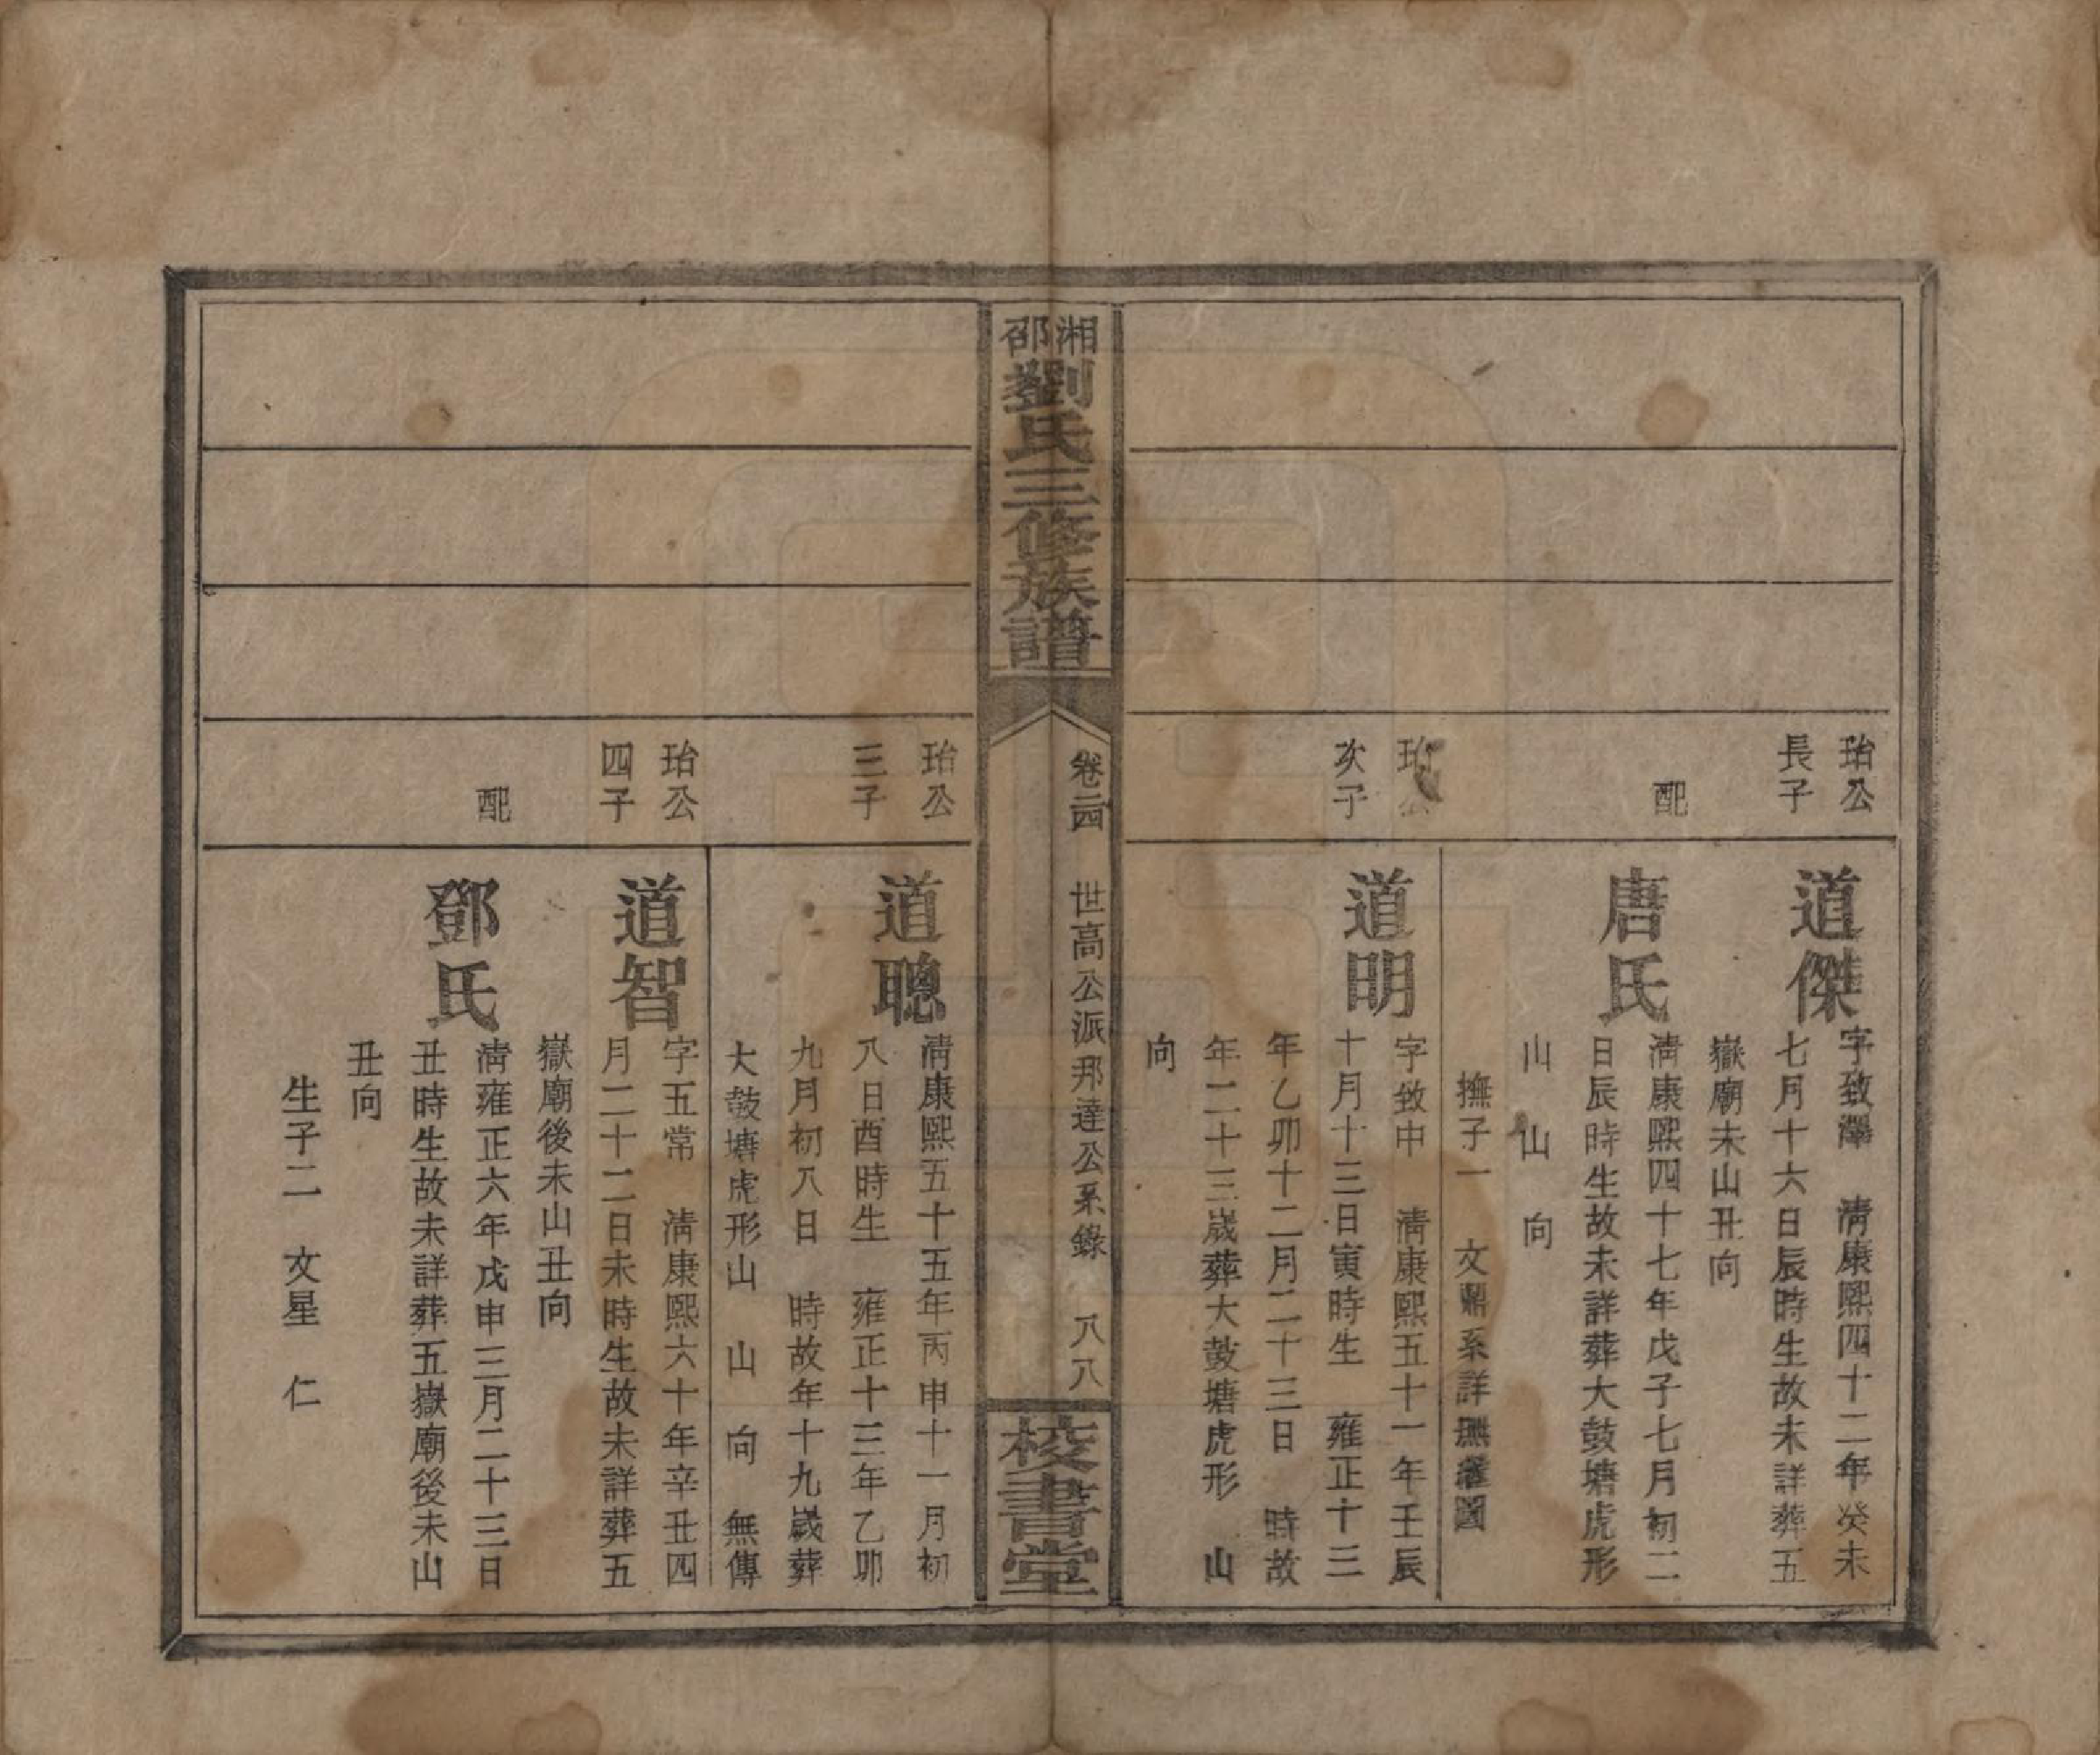 珆公
長子
道傑
字致澤　清康熙四十二年癸未
七月十六日辰時生故未詳葬五
嶽廟未山丑向
配
唐氏
清康熙四十七年戊子七月初二
日辰時生故未詳葬大鼓塘虎形
山　山　向
撫子一　文鼎系詳
珆公
次子
道明
字致中　清康熙五十一年壬辰
十月十三日寅時生　雍正十三
年乙卯十二月二十三日　時故
年二十三歲葬大鼓塘虎形　山
向
湘邵劉氏三修族譜
卷二四　世高公派邦達公系錄　八八
校書堂
珆公
三子
道聰
清康熙五十五年丙申十一月初
八日酉時生　雍正十三年乙卯
九月初八日　時故年十九歲葬
大鼓塘虎形山　山　向　無傳
珆公
四子
道智
字五常　清康熙六十年辛丑四
月二十二日未時生故未詳葬五
嶽廟後未山丑向
配
鄧氏
清雍正六年戊申三月二十三日
丑時生故未詳葬五嶽廟後未山
丑向
生子二　文星　仁